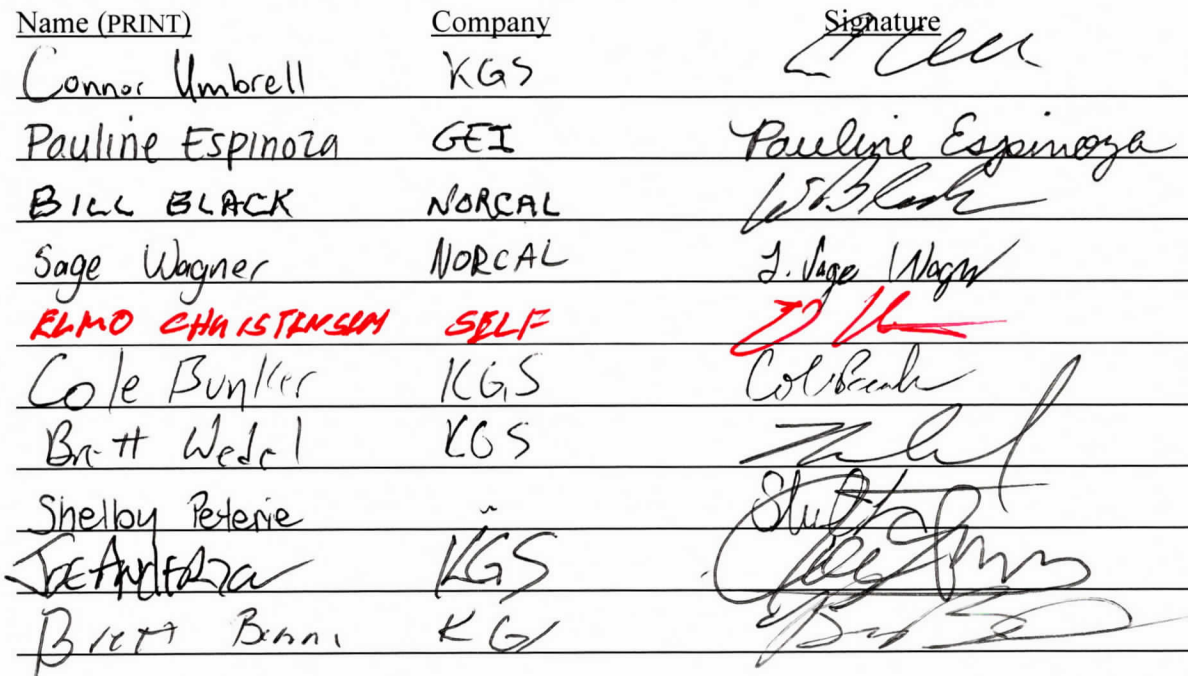 Name (PRINT) Company Signature
Connor Umbrell KGS
Pauline Espinoza GEI Pauline Espinoza
BILL BLACK NORCAL W Black
Sage Wagner NORCAL J. Sage Wagner
ELMO CHRISTENSEN SELF
Cole Bunker KGS
Brett Wedel KGS
Shelby Peterie "
Joe Anderson KGS
Brett KGS